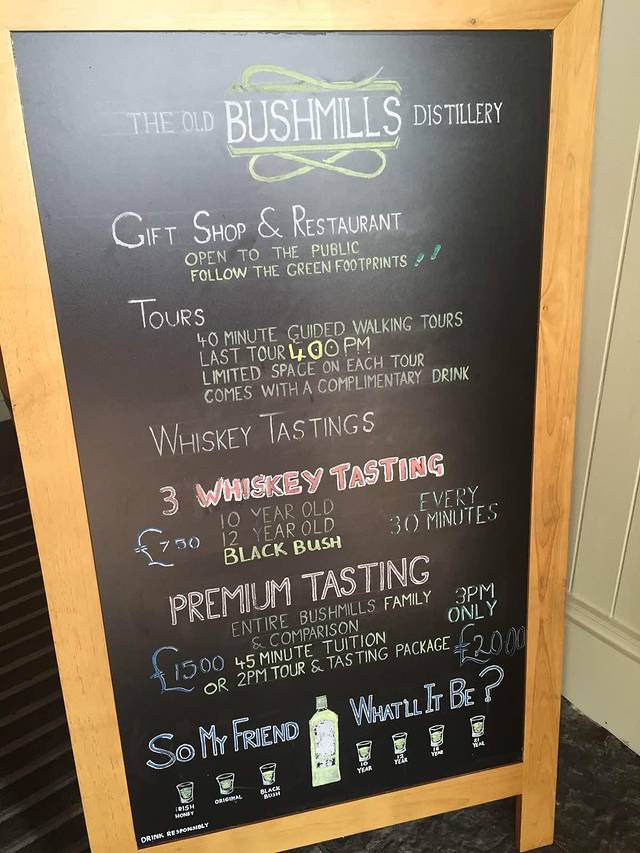 THE OLD BUSHMILLS DISTILLERY
GIFT SHOP & RESTAURANT
OPEN TO THE PUBLIC
FOLLOW THE GREEN FOOTPRINTS
TOURS
40 MINUTE GUIDED WALKING TOURS
LAST TOUR 400PM
LIMITED SPACE ON EACH TOUR
COMES WITH A COMPLIMENTARY DRINK
WHISKEY TASTINGS
3 WHISKEY TASTING
£750
10 YEAR OLD
12 YEAR OLD
BLACK BUSH
EVERY
30 MINUTES
PREMIUM TASTING
ENTIRE BUSHMILLS FAMILY
& COMPARISON
3PM
ONLY
£1500 45 MINUTE TUITION
OR 2PM TOUR & TASTING PACKAGE £2000
SO MY FRIEND WHAT'LL IT BE?
IRISH
HONEY
ORIGINAL
BLACK
BUSH
10
YEAR
12
YEAR
16
YEAR
21
YEAR
DRINK RESPONSIBLY